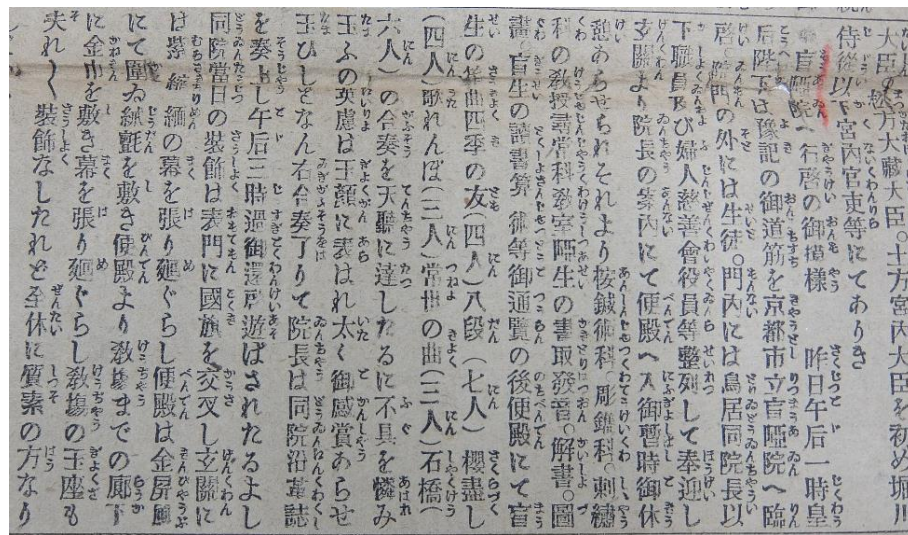 大臣。松方大藏大臣。土方宮内大臣を初め堀川
侍從以下宮内官吏等にてありき
盲啞院へ行啓の御摸樣　昨日午后一時皇
后陛下は豫記の御道筋を京都市立盲啞院へ臨
啓　門の外には生徒。門内には鳥居同院長以
下職員及び婦人慈善會役員等整列して奉迎し
玄關より院長の案内にて便殿へ入御暫時御休
憩あらせられそれより按鍼術科。彫鐫科。刺繡
科の敎授尋常科敎室啞生の書取發音。解書。圖
畵。盲生の讀書算術等御通覽の後便殿にて盲
生の箏曲四季の友(四人)八段(七人)櫻盡し
(四人)歌れんぼ(三人)常世の曲(三人)石橋(
六人)の合奏を天聽に達したるに不具を憐み
玉ふの英慮は玉顏に表はれ太く御感賞あらせ
玉ひしとなん右合奏了りて院長は同院沿革誌
を奏上し午后三時過御還啓遊ばされたるよし
同院當日の裝飾は表門に國旗を交叉し玄關に
は紫縮緬の幕を張り廻ぐらし便殿は金屛風
にて圍ゐ絨氈を敷き便殿より敎塲までの廊下
に金巾を敷き幕を張り廻ぐらし敎塲の玉座も
夫れ〱裝飾なしたれど全休に質素の方なり